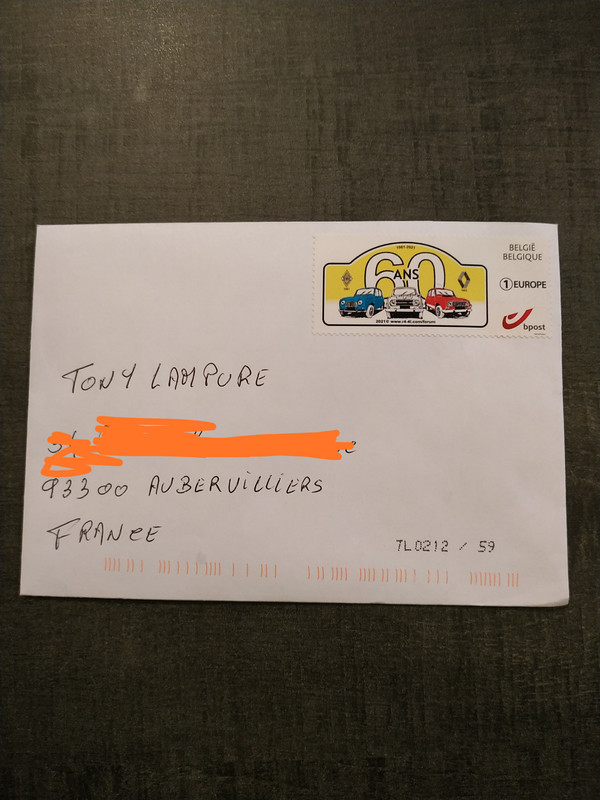 1961-2021
60
ANS
2021© www.r4-4l.com/forum
BELGIË
BELGIQUE
1 EUROPE
bpost
TONY LAMPURE
93300 AUBERVILLIERS
FRANCE
7L0212 / 59